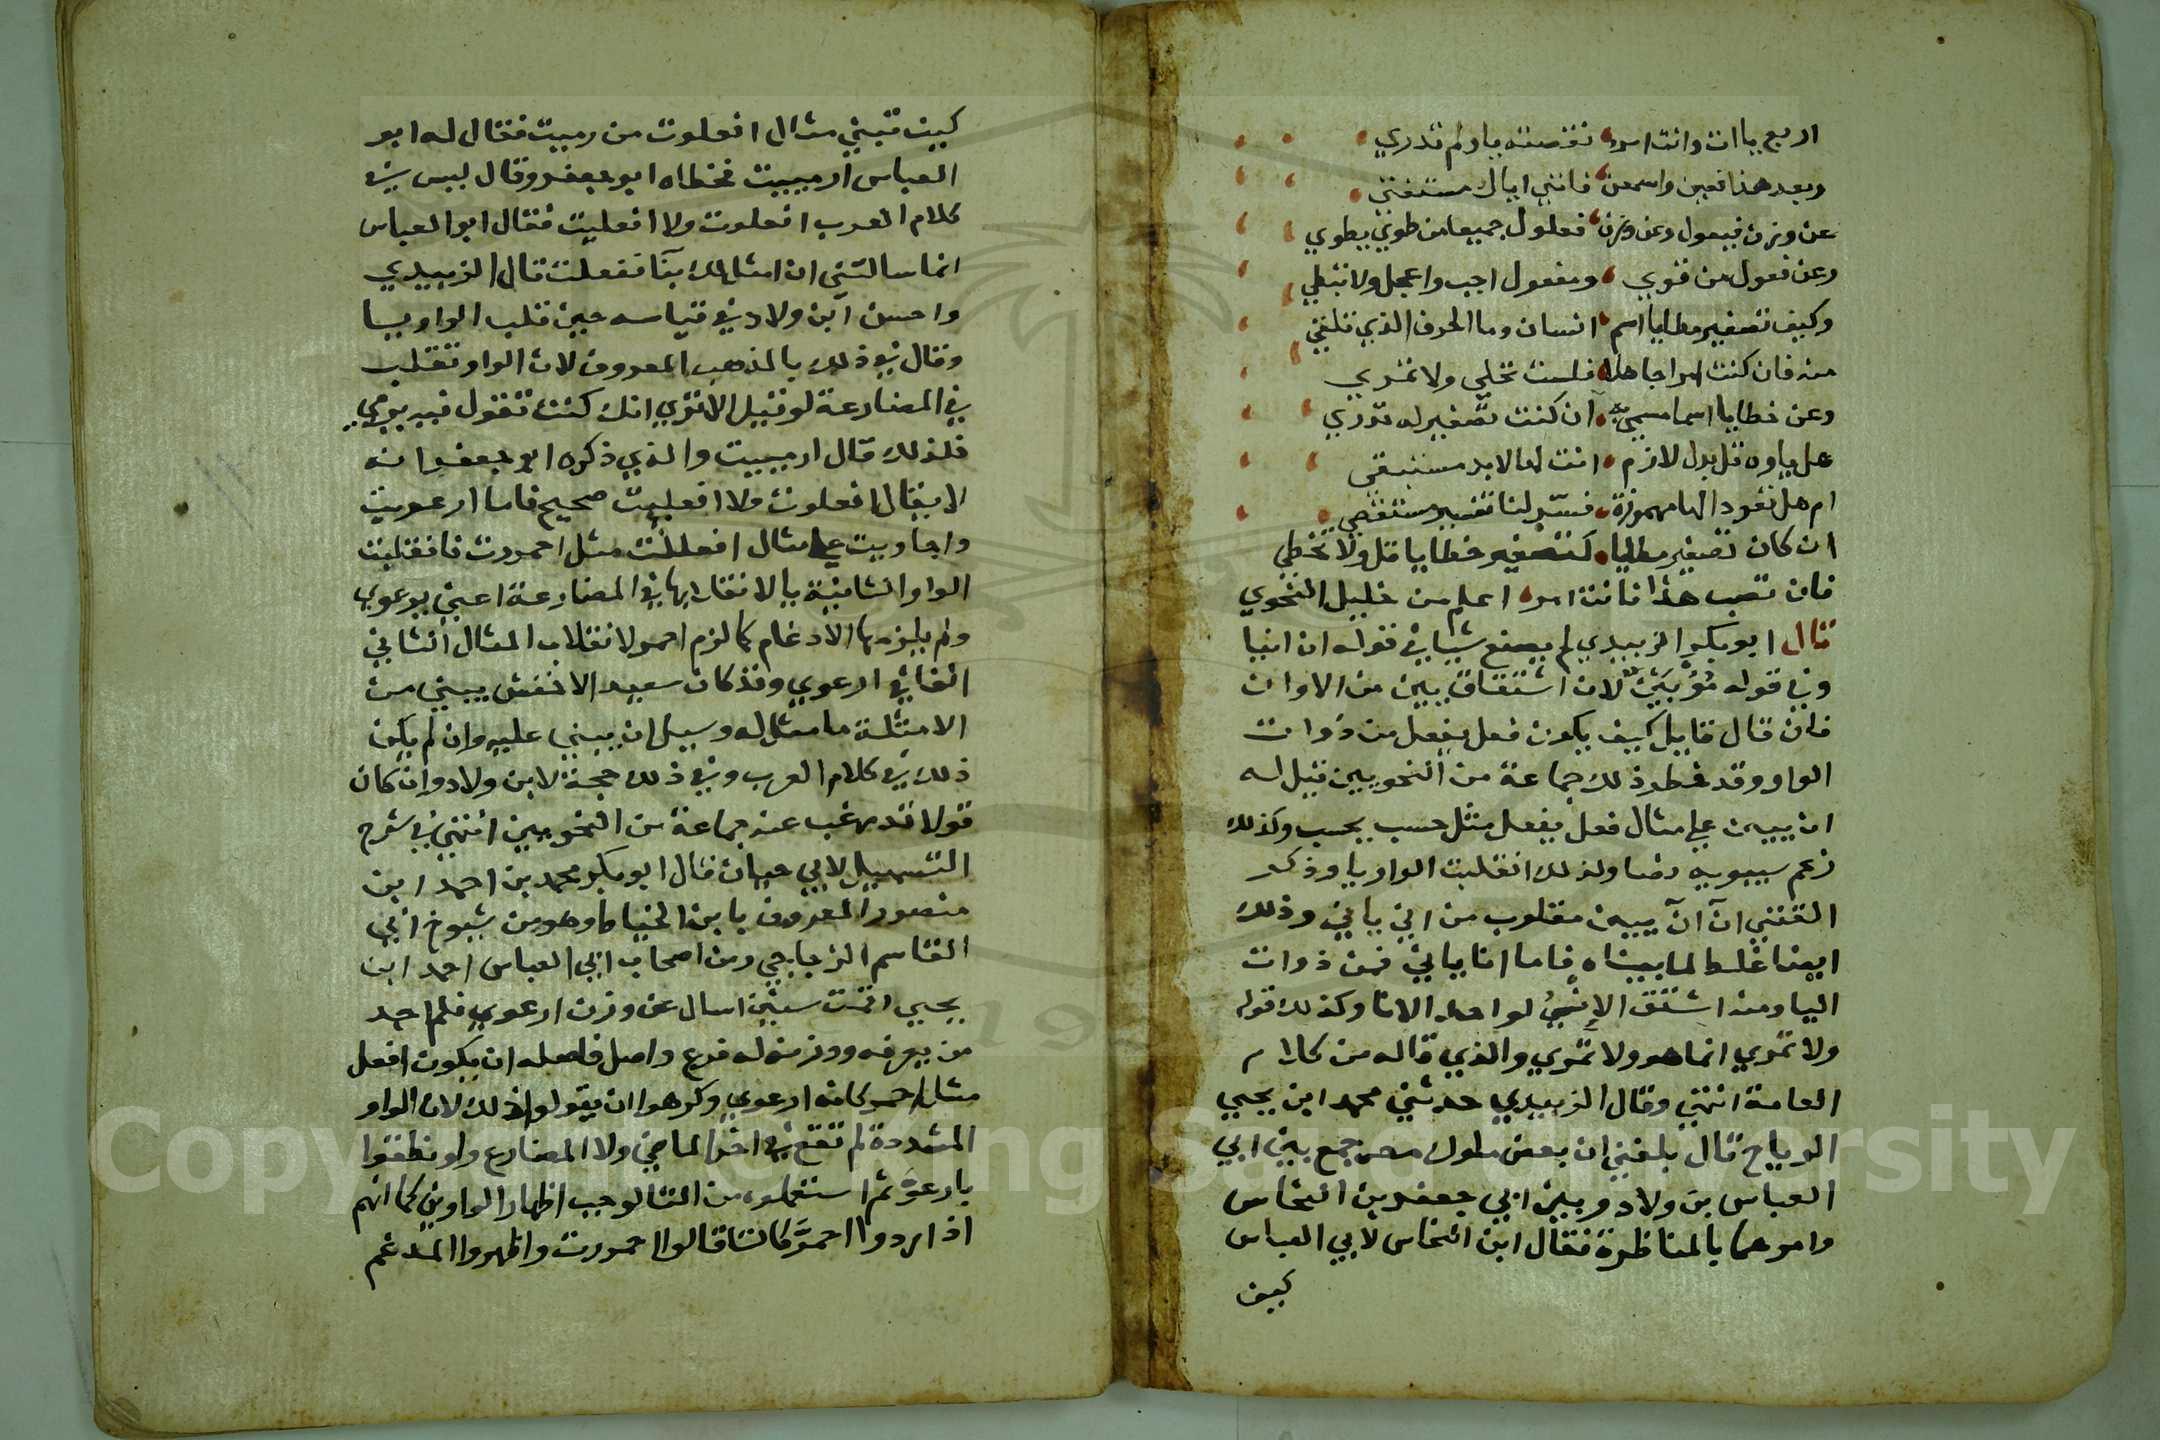 اربع ياات وانت امرء نقصته يا ولم تدري
وبعد هذا فعين واسمعن فانني اياك مستفتي
عن وزن فيعول وعن وزن فعلول جميعا من طوي يطوي
وعن فعول من قوي ومفعول اجب واعجل ولا تبطي
وكيف تصغير مطايا اسم انسان وما الحرف الذي تلغي
منه فان كنت امرا جاهلا فلست تحلي ولا تمري
وعن خطايا اسما مسمى به ان كنت تصغيرله تدري
هل ياوه قل بدل لازم انت لها لابد مستبقي
ام هل تعود الها مهموزة فسّر لنا تفسير مستقصي
ان كان تصغير مطايا كتصغير خطايا قل ولا تخطي
فان تصب هذا فانت امرء اعلم من خليل النحوي
قال ابوبكر الزبيدي لم يصنع شيا في قوله ان انيا
وفي قوله مُؤبَيَنٌ لان اشتقاق يبين من الاوان
فان قال قايل كيف يكون فعل يفعل من ذوات
الواو وقد غلط ذلك جماعة من النحويين قيل له
ان يبين علي مثال فعل يفعل مثل حسب يحسب وكذلك
زعم سيبويه رضا ولذلك انقلبت الواو يا وذكر
القتني ان آن يبين مقلوب من اني ياني وذلك
ايضا غلط لما بيناه فاما انا ياني فمن ذوات
اليا ومنه اشتق الإنيُ لواحد الانا وكذلك قوله
ولا تمري انما هو ولا تمري والذي قاله من كلام
العامة انتهي وقال الزبيدي حدثني محمد ابن يحيي
الرياحي قال بلغني ان بعض ملوك مصر جمع بين ابي
العباس بن ولاد وبين ابي جعفر بن النحاس
وامرهما بالمناظرة فقال ابن النحاس لابي العباس
كيف
كيف تبني مثال افعلوت من رميت فقال له ابو
العباس ارمييت فخطاه ابو جعفر وقال ليس في
كلام العرب افعلوت ولا افعليت فقال ابو العباس
انما سالتني ان امثل لك بنآ ففعلت قال الزبيدي
واحسن ابن ولاد في قياسه حين قلب الواو يا
وقال في ذلك بالمذهب المعروف لان الواو تقلب
في المضارعة لو قيل الا تري انك كنت تقول فيه يرمي
فلذلك قال ارمييت والذي ذكره ابو جعفر انه
لا يقال افعلوت ولا افعليت صحيح فاما ارعويت
واجاويت علي مثال افعللت مثل احمررت فانقلبت
الواو الثانية يا لانقلابها في المضارعة اعني يرعوي
ولم يلزمها الادغام كما لزم احمر لانقلاب المثال الثاني
الفا في ارعوي وقد كان سعيد الاخفش يبني من
الامثلة ما مثل له وسيل ان يبني عليه وان لم يكن
ذلك في كلام العرب وفي ذلك حجة لابن ولاد وان كان
قولا قد رغب عنه جماعة من النحويين انتهي في شرح
التسهيل لابي حيان قال ابو بكر محمد بن احمد ابن
منصور المعروف بابن الخياط وهو من شيوخ ابي
القاسم الزجاجي ومن اصحاب ابي العباس احمد ابن
يحيي اقمت سنين اسال عن وزن ارعوي فلم اجد
من يعرفه ووزنه له فرع واصل فاصله ان يكون افعل
مثل احمر كانه ارعوي وكرهوا ان يقولوا ذلك لان الواو
المشددة لم تقع في اخر الماضي ولا المضارع ولو نطقوا
بارعوَّ ثم استعملوه من التا لوجب اظهار الواوين كما انهم
اذا ردوا احمرَّ كاتا قالوا احمررت واظهروا المدغم